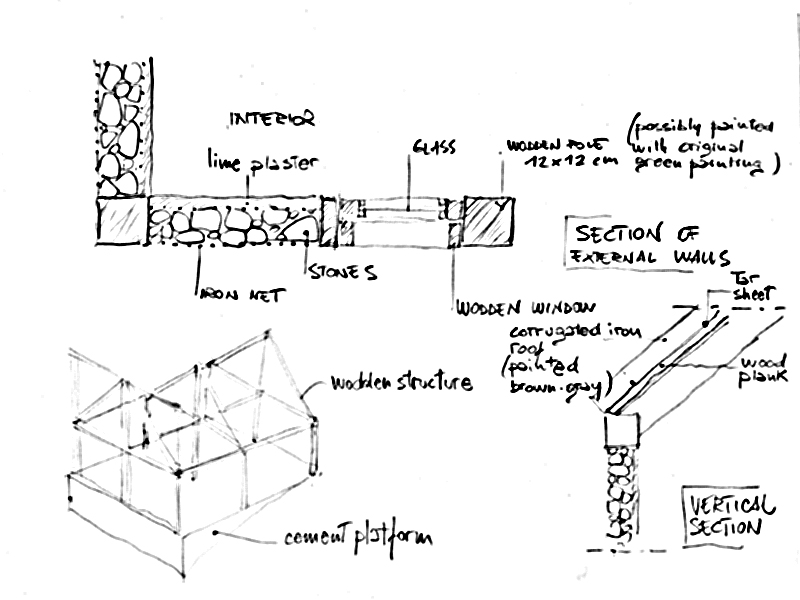 INTERIOR
lime plaster
GLASS
WOODEN POLE
12x12 cm
(possibly painted
with original
green painting)
STONES
IRON NET
WOODEN WINDOW
SECTION OF
EXTERNAL WALLS
Tar
sheet
corrugated iron
roof
(painted
brown-gray)
wood
plank
wooden structure
cement platform
VERTICAL
SECTION